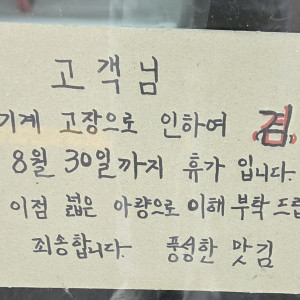 고객님
기계 고장으로 인하여 겸
8월 30일까지 휴가 입니다.
이점 넓은 아량으로 이해 부탁 드립
죄송합니다. 풍성한 맛김